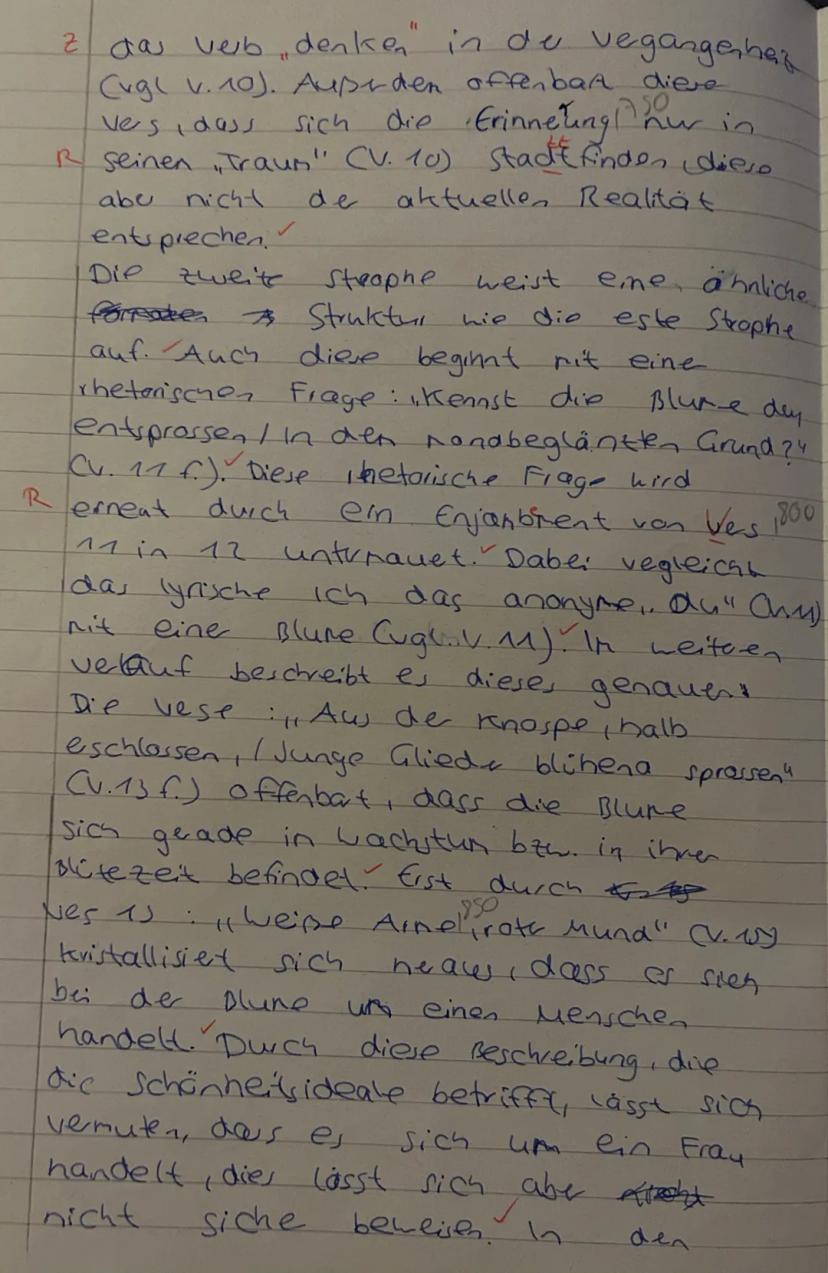 Z das Verb „denken" in der Vegangenheit
(vgl V.10). Außerden offenbart diese
Vers, dass sich die Erinnerung 750 nur in
R seinen „Traum" (V. 10) Stadtfinden, diese
aber nicht de aktuellen Realität
entsprechen. ✓
Die zweite Strophe weist eine ähnliche
Struktur wie die este Strophe
auf. ✓ Auch diese beginnt mit eine
rhetorischen Frage: „Kennst die Blume den
entsprossen / In den mondbeglänzten Grund?"
(V. 11 f.). ✓ Diese rhetorische Frage wird
R erneut durch ein Enjambment von Ves 800
11 in 12 untermauet. ✓ Dabei vegleicht
das lyrische Ich das anonyme „du" (V.11)
mit eine Blume (vgl. V. 11). ✓ In weiteren
Velauf beschreibt es dieses genauer.
Die Vese: „Aus de Knospe, halb
eschlossen, / Junge Gliede blühend sprossen"
(V.13 f.) offenbart, dass die Blume
sich gerade in Wachstum bzw. in ihrer
Blütezeit befindet. ✓ Erst durch
Ves 15: „Weiße Arme, 850 rote Mund" (V. 15)
kristallisiet sich heraus, dass es sich
bei der Blume um einen Menschen
handelt. ✓ Durch diese Beschreibung, die
die Schönheitsideale betrifft, lässt sich
vermuten, dass es sich um ein Frau
handelt, dies lässt sich aber
nicht siche beweisen. ✓ In den